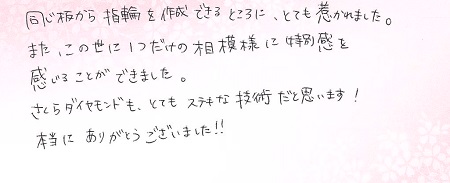 同じ板から指輪を作成できるところに、とても惹かれました。
また、この世に1つだけの相模様に特別感を
感じることができました。
さくらダイヤモンドも、とてもステキな技術だと思います!
本当にありがとうございました!!